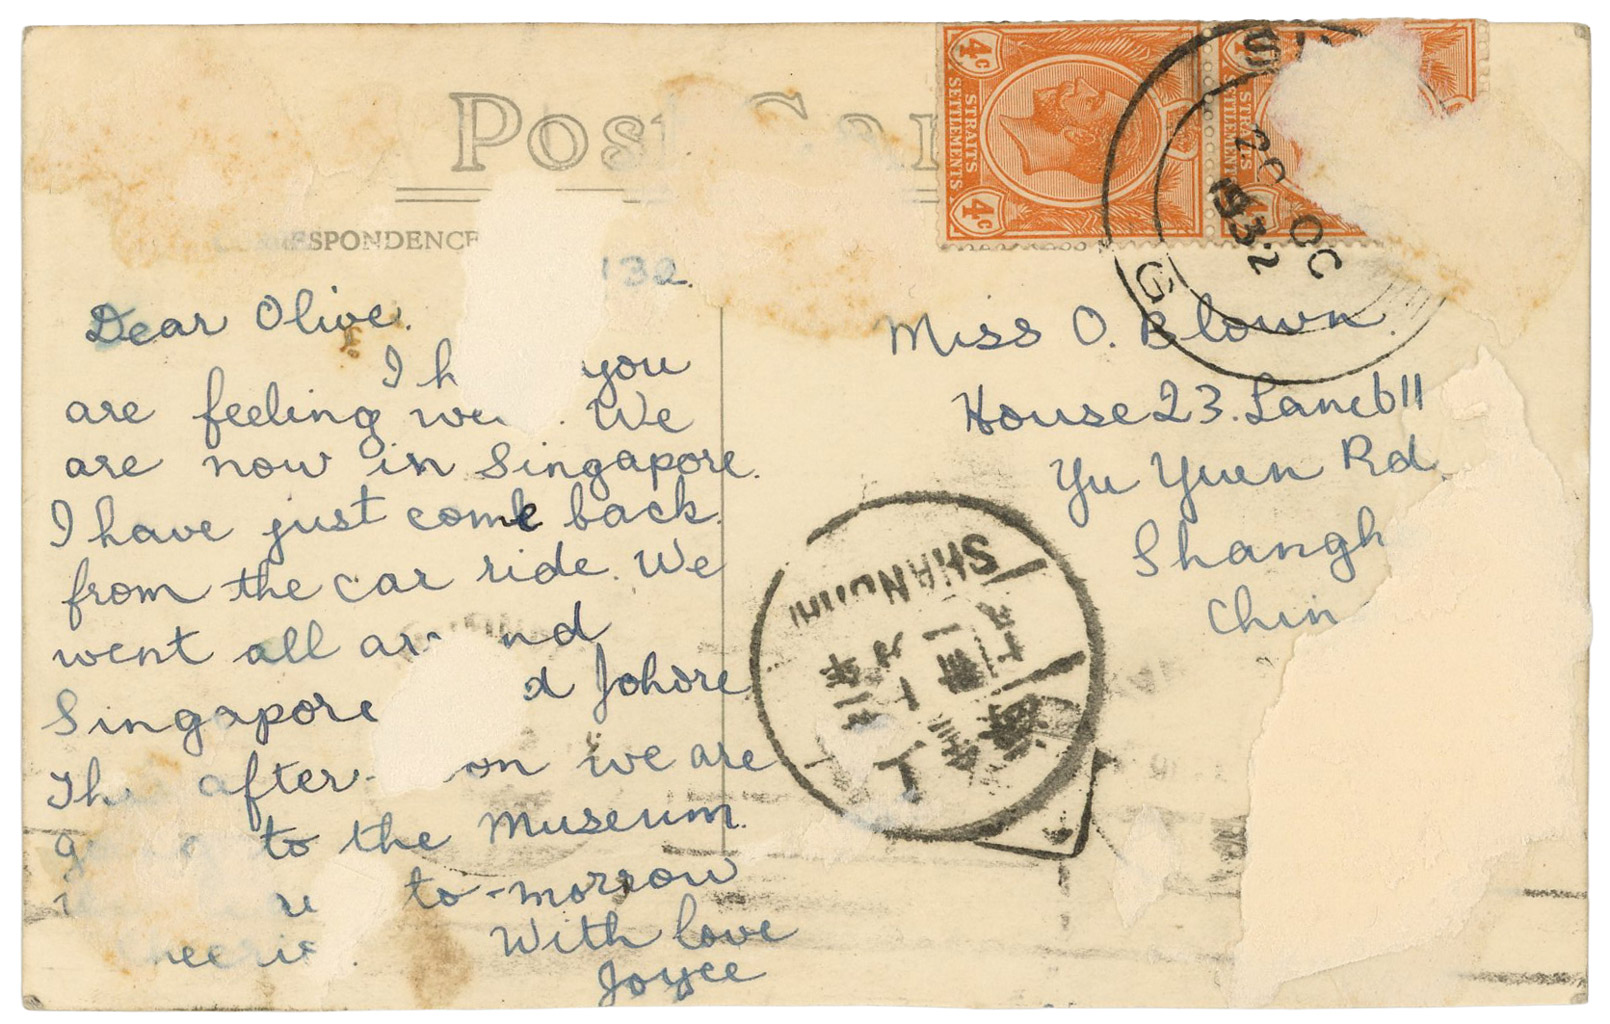 Post
4c 4c
STRAITS SETTLEMENTS
4c
STRAITS
20 OC
1932
G
SPONDENCE
132.
Dear Olive.
I h you
are feeling we . We
are now in Singapore.
I have just come back.
from the car ride. We
went all ar nd
Singapore d Johore
Th after- on we are
g to the Museum.
to-morrow
With love
Joyce
Miss O. Blown.
House 23. Lane 611
Yu Yuen Rd.
Shangh
Chin
SHANGHAI
上海